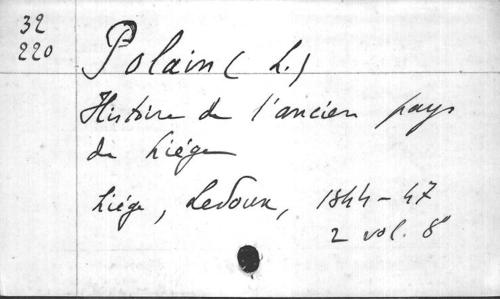 32
220
Polain ( L.)
Histoire de l'ancien pays
de Liége
Liége, Ledoux, 1844-47
2 vol. 8°